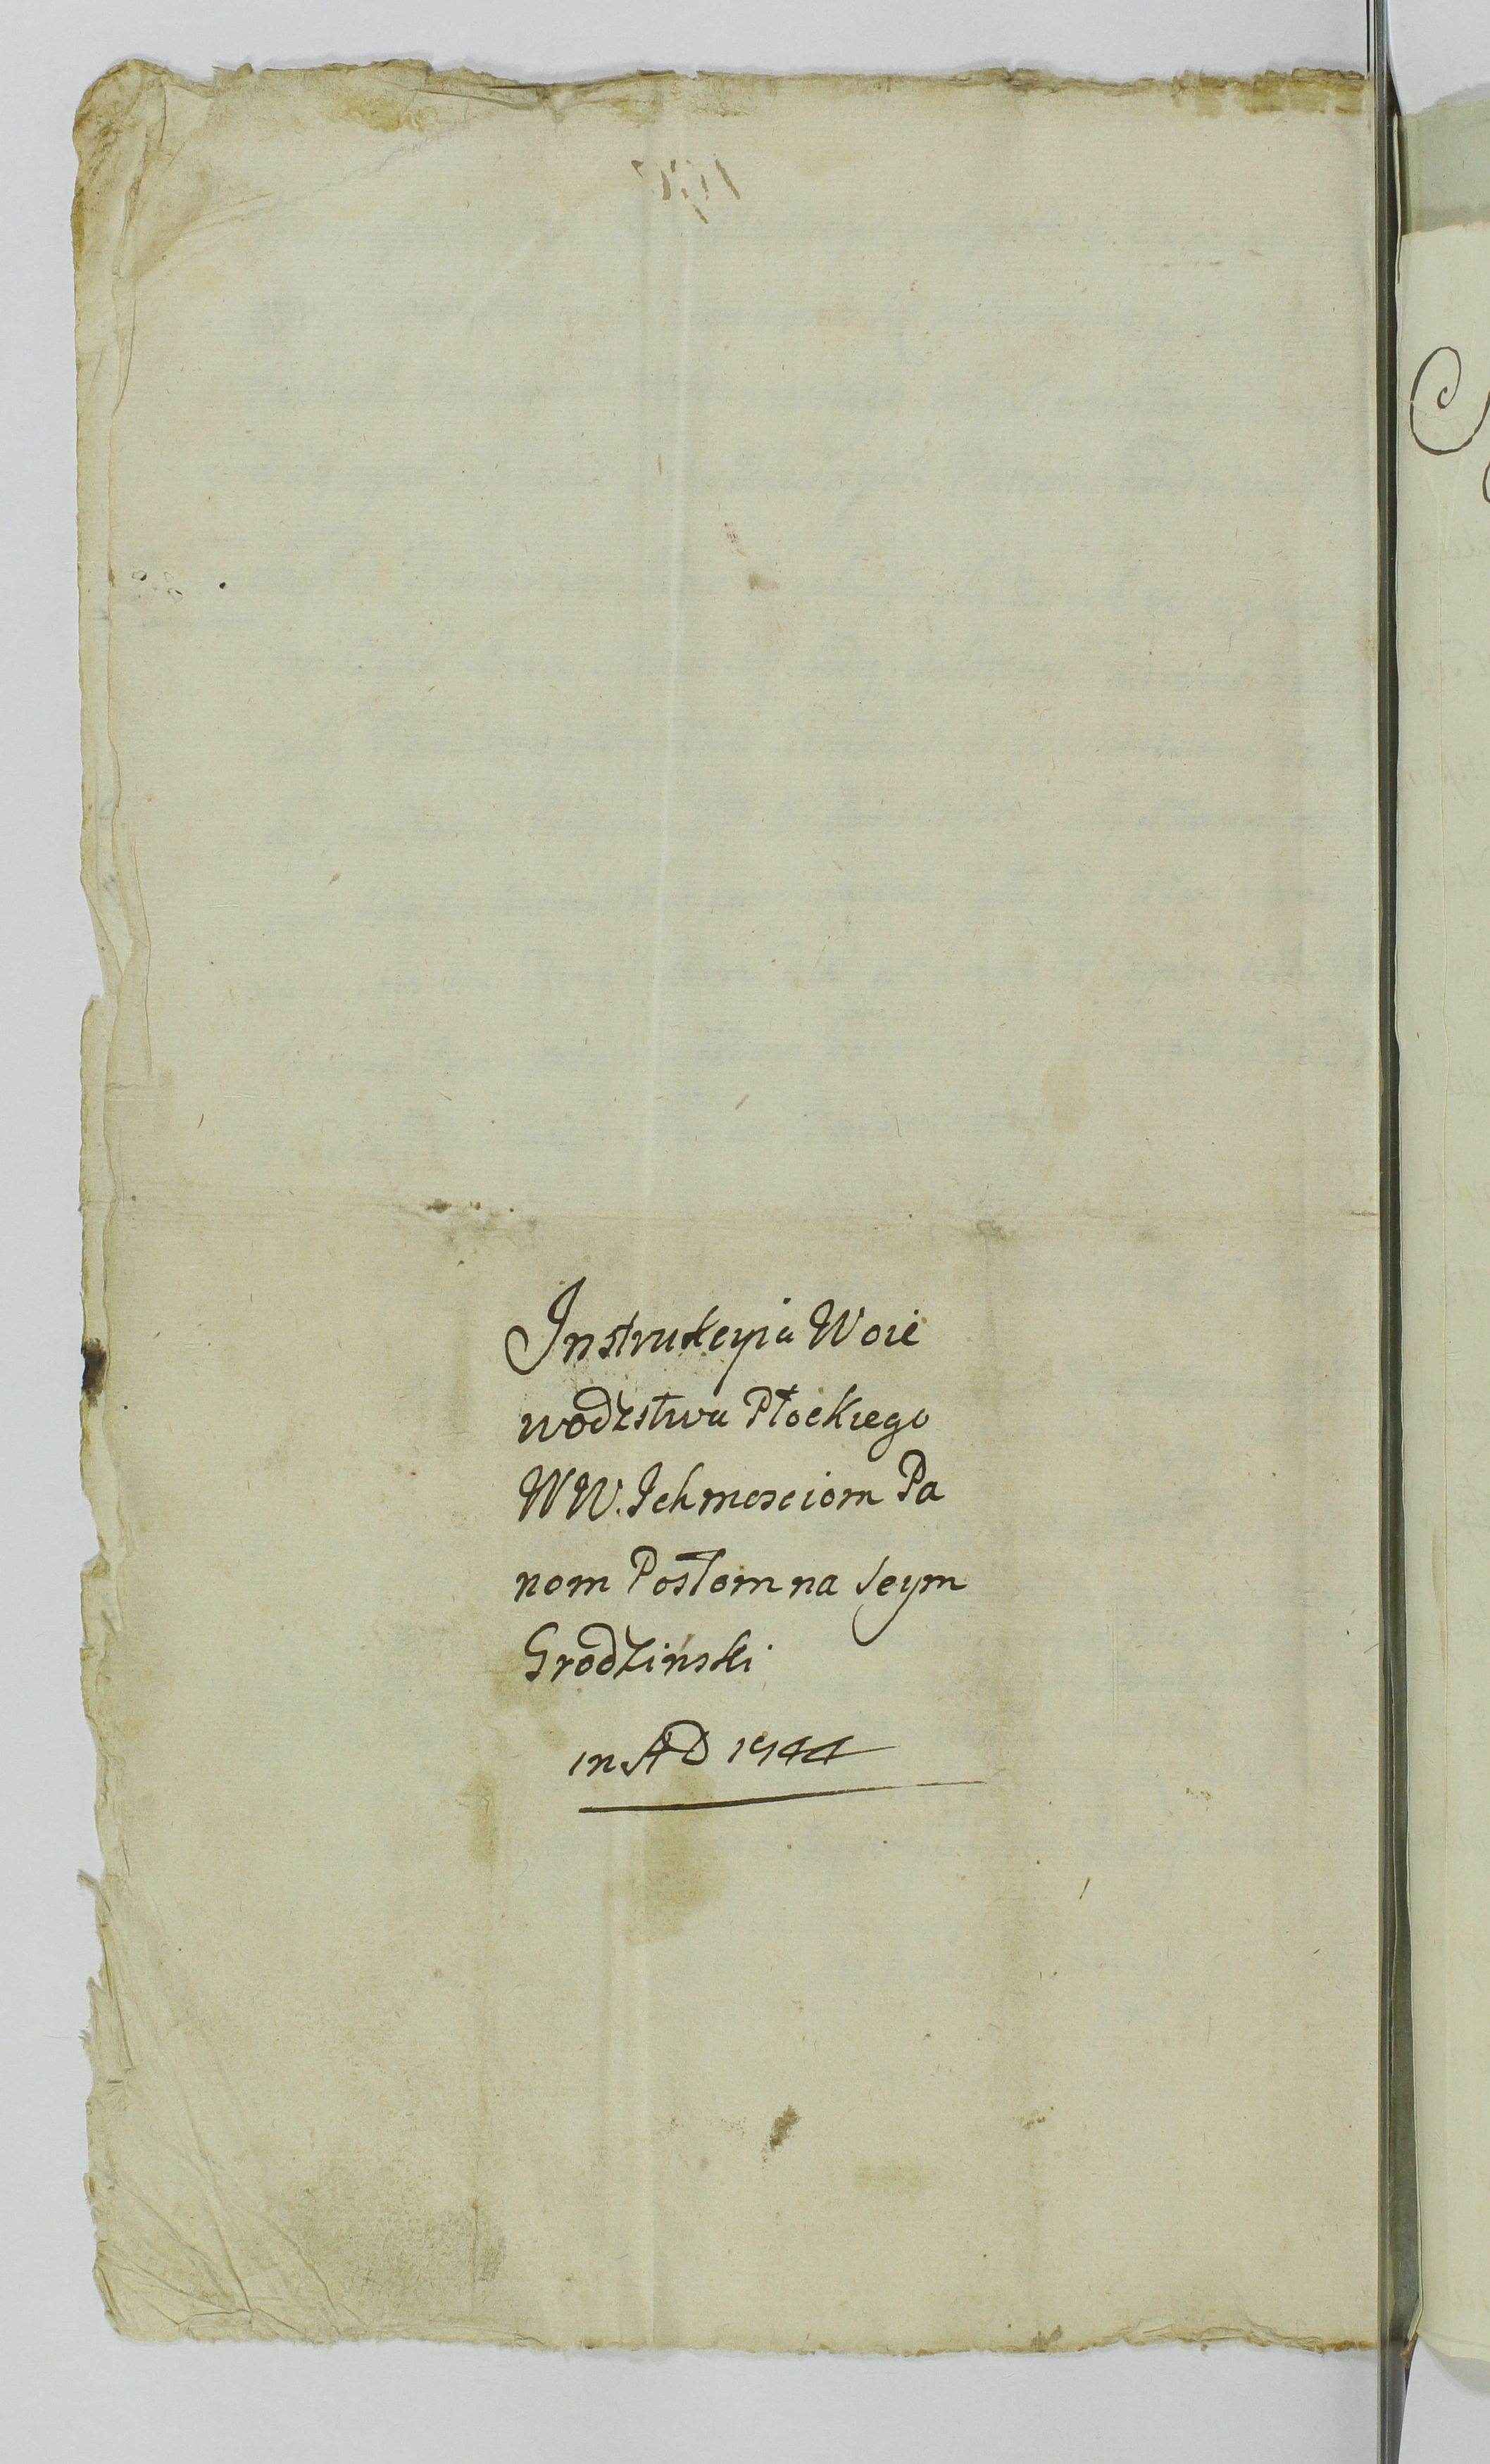 Instrukcyia Woie
wodzstwa Płockiego
WW. Ichmosciom Pa
nom Posłom na Seym
Grodziński
in AD 1744